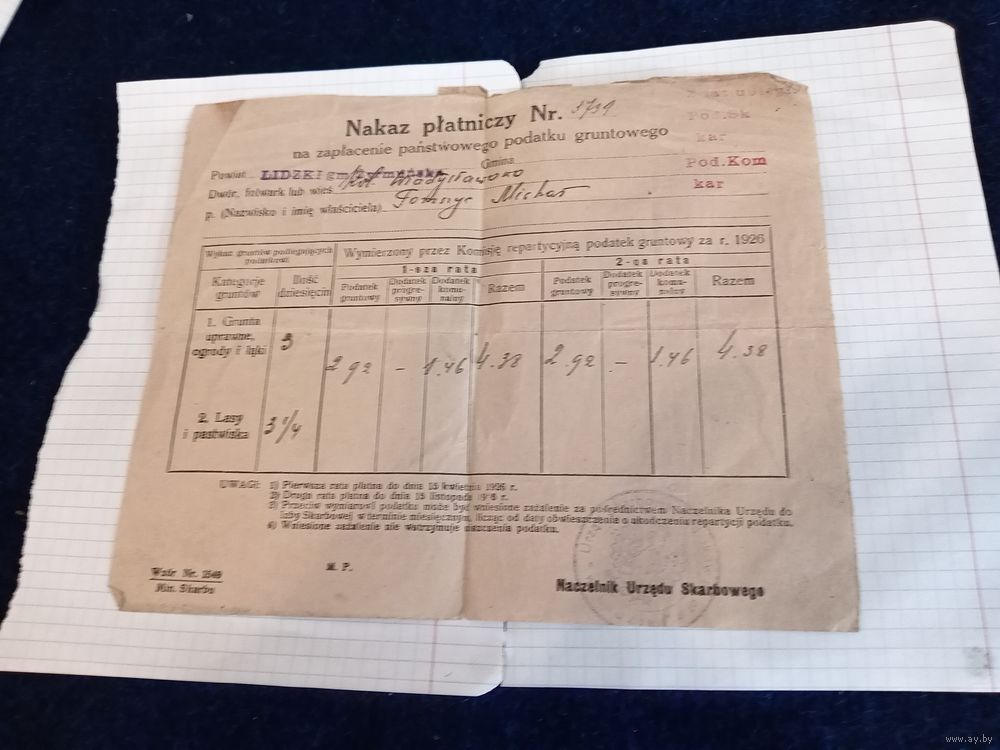 Nakaz płatniczy Nr. 3739
na zapłacenie państwowego podatku gruntowego
Pod.Sk
kar
Pod.Kom
kar
Powiat LIDZKI gm. Gmina
Dwór, folwark lub wieś
p. (Nazwisko i imię właściciela) Michał
Wykaz gruntów podlegających podatkowi
Wymierzony przez Komisję repartycyjną podatek gruntowy za r. 1926
1-sza rata 2-ga rata
Kategorje gruntów Ilość dziesięcin Podatek gruntowy Dodatek progresywny Dodatek komunalny Razem Podatek gruntowy Dodatek progresywny Dodatek komunalny Razem
1. Grunta uprawne, ogrody i łąki 3
2 92 – 1.46 4.38 2.92 – 1.46 4.38
2. Lasy i pastwiska 3 1/4
UWAGI: 1) Pierwsza rata płatna do dnia 15 kwietnia 1926 r.
2) Druga rata płatna do dnia 15 listopada 1926 r.
3) Przeciw wymiarowi podatku może być wniesione zażalenie za pośrednictwem Naczelnika Urzędu do
Izby Skarbowej w terminie miesięcznym, licząc od daty obwieszczenia o ukończeniu repartycji podatku.
4) Wniesione zażalenie nie wstrzymuje uiszczenia podatku.
M. P.
Wzór Nr. 1549
Min. Skarbu
Naczelnik Urzędu Skarbowego
www.ay.by